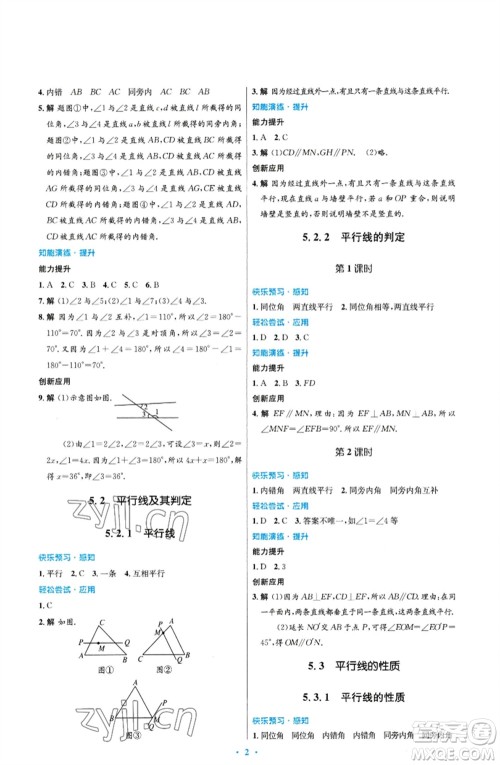 4. 内错 AB BC AC 同旁内 AB
5. 解 题图①中，∠1与∠2是直线c，d被直线l所截得的同
位角，∠3与∠4是直线a，b被直线l所截得的同旁内角；
题图②中，∠1与∠2是直线AB，CD被直线BC所截得
的同位角，∠3与∠4是直线AB，CD被直线AC所截得
的内错角；题图③中，∠1与∠2是直线AB，CD被直线
AG所截得的同位角，∠3与∠4是直线AG，CE被直线
CD所截得的内错角；题图④中，∠1与∠2是直线AD，
BC被直线AC所截得的内错角，∠3与∠4是直线AB，
CD被直线AC所截得的内错角.
知能演练·提升
能力提升
1. A 2. C 3. C 4. B 5. B 6. C
7. 解 (1)∠2与∠5；(2)∠7；(3)∠1与∠4.
8. 解 因为∠2=60°，所以∠1=180°-∠2=180°-
60°=120°(邻补角定义).
又因为∠1=∠4，所以∠2+∠4=60°+120°=180°，
所以∠4=120°，所以∠3=180°-∠4=180°-
120°=60°.
创新应用
9. 解 (1)示意图如图.
2
3 1
(2)由∠1=2∠2，∠2=2∠3，可设∠3=x，则∠2=
2x，∠1=4x.又因为∠1+∠3=180°，所以x+4x=180°，
解得x=36°，故∠3=36°.
5.2 平行线及其判定
5.2.1 平行线
快乐预习·感知
1. 平行 2. 一条 3. 互相平行
轻松尝试·应用
1. C
2. 解 如图.
C
P
A B
图①
A
P
C B
图②
A
C B
P
图③
3. 解 因为经过直线外一点，有且只有一条直线与这条直
线平行.
知能演练·提升
能力提升
1. A 2. C
3. 解 (1)CD∥MN，GH∥PN. (2)略.
创新应用
4. 解 因为经过直线外一点，有且只有一条直线与这条直
线平行，所以若a与墙壁平行，且a与OP重合，则说明
墙壁是竖直的.
5.2.2 平行线的判定
第1课时
快乐预习·感知
1. 同位角 两直线平行 2. 同位角相等，两直线平行
轻松尝试·应用
1. D 2. C
知能演练·提升
能力提升
1. A 2. B 3. FD
创新应用
4. 解 EF∥MN，理由：因为EF⊥AB，MN⊥AB，所以
∠MNF=∠EFB=90°，所以EF∥MN.
第2课时
快乐预习·感知
1. 内错角 两直线平行 2. 同旁内角 同旁内角互补
轻松尝试·应用
1. D 2. C 3. 答案不唯一，如∠1=∠4
知能演练·提升
能力提升
1. D 2. 3
创新应用
5.3 平行线的性质
5.3.1 平行线的性质
快乐预习·感知
1. 同位角 同位角 内错角 内错角 同旁内角 同旁内角
2